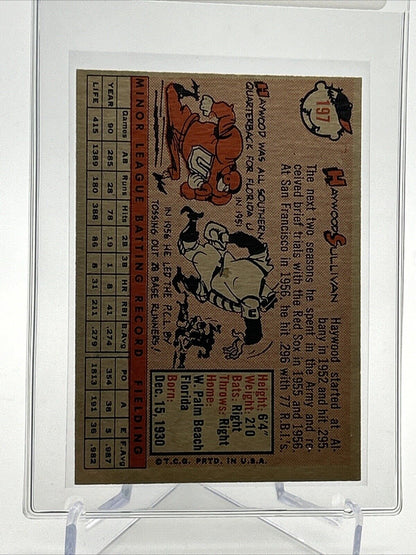 197
HAYWOOD SULLIVAN
Haywood started at Al-
bany in 1952 and hit .295.
The next two seasons he spent in the Army and re-
ceived brief trials with the Red Sox in 1955 and 1956
At San Francisco in 1956, he hit .296 with 77 R.B.I.'s.
HAYWOOD WAS ALL SOUTHERN
QUARTERBACK FOR FLORIDA U
IN 195
IN 1956 HE LED THE P.C.L. BY
TOSSING OUT BASE RUNNERS!
Height: 6'4"
Weight: 210
Bats: Right
Throws: Right
Home:
W. Palm Beach
Florida
Born:
Dec. 15, 1930
MINOR LEAGUE BATTING RECORD FIELDING
Games AB Runs Hits 2B 3B HR RBI B.Avg PO A E F.Avg
YEAR 90 285 28 78 19 1 8 41 .274 394 36 5
LIFE 415 1389 180 388 86 8 31 211 .279 1813 191 .982
©T.C.G. PRTD. IN U.S.A.